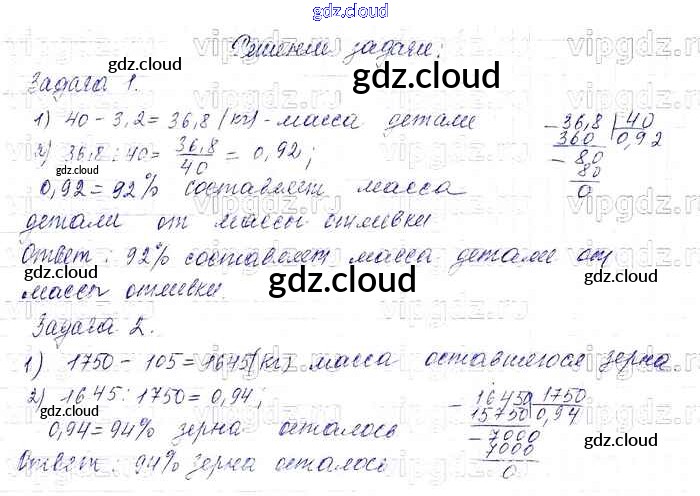 gdz.cloud
Решение задачи:
Задача 1.
1) 40 - 3,2 = 36,8 (кг) - масса детали
2) 36,8 : 40 = 36,8/40 = 0,92;
0,92 = 92% составляет масса
детали от массы отливки
Ответ: 92% составляет масса детали от
массы отливки.
- 36,8 | 40
360 | 0,92
- 80
80
0
Задача 2.
1) 1750 - 105 = 1645 (кг) масса оставшегося зерна.
2) 1645 : 1750 = 0,94;
0,94 = 94% зерна осталось
Ответ: 94% зерна осталось
- 16450 | 1750
15750 | 0,94
- 7000
7000
0
gdz.cloud
gdz.cloud
gdz.cloud
gdz.cloud
gdz.cloud
gdz.cloud
gdz.cloud
vipgdz.ru